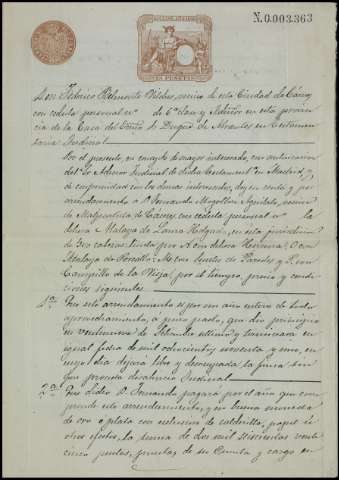 N. 0.003.363
Don Federico Belmonte Vilches, vecino de esta Ciudad de Cáceres
con cédula personal nº de 6ª clase y Admor en esta provin
cia de la Casa del Duque de Abrantes en testamen
taria Judicial
Por el presente, en concepto de mayor interesado, con autorizacion
del Sr Admor Judicial de dicha testament en Madrid, y
de conformidad con los demas interesados, doy en renta y por
arrendamiento a D Fernando Mogollon vecino
de Malpartida de Cáceres con cedula personal nº la
dehesa Atalaya de Lanra Holguin, en esta jurisdiccion
de 300 cabezas, linda por N. con dehesa Herrera, O con
Atalaya de Porcallo, M. con de Paredes y P. con
Campillo de la Vieja, por el tiempo, precio y condi
ciones siguientes
1ª Que este arrendamiento es por un año entero de todo
aprovechamiento, a puro pasto, que dio principio
en veintinueve de Setiembre ultimo y terminará en
igual fecha de mil ochocientos noventa y uno, en
cuyo dia dejará libre y desocupada la finca sin
que preceda desahucio Judicial
2ª Que dicho D. Fernando pagará por el año que com
prende este arrendamiento, y en buena moneda
de oro o plata con exclusion de calderilla, papel u
otros efectos, la suma de dos mil seiscientas veinte
cinco pesetas, puestas, de su Cuenta y cargo en